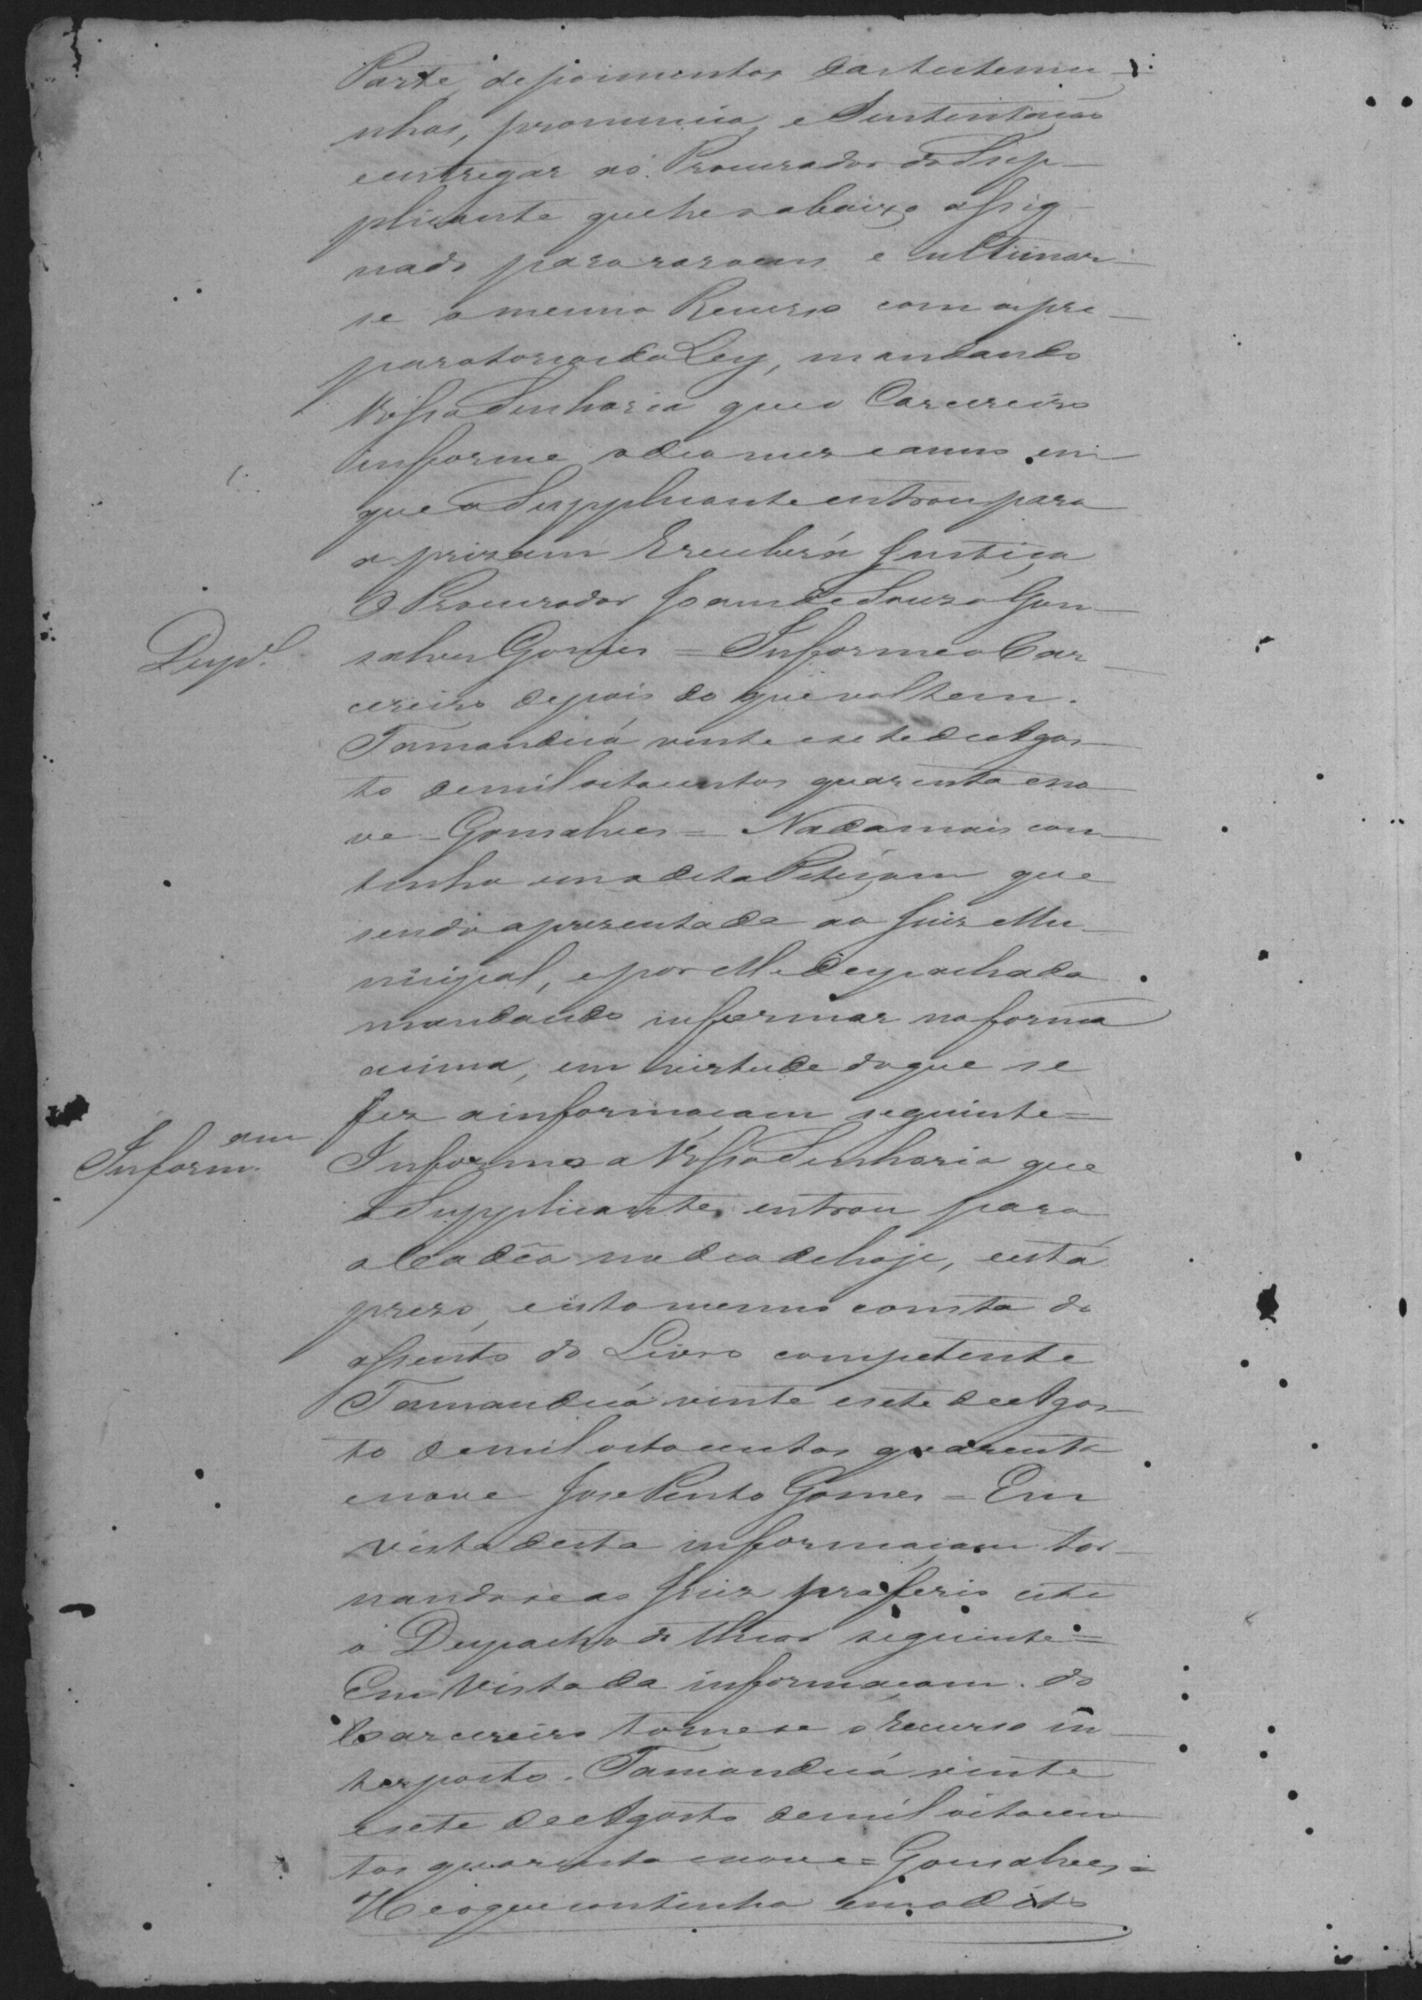 Parte, depoimentos dastestemu-
nhas, pronuncia, e Sustentacão
entregar aó Procurador do Sup-
plicante que he o abaixo assig-
nado para razoens e ultimar-
se o mesmo Recurso com os pre-
paratorios da Ley, mandando
Vossa Senhoria que o Carcereiro
informe o dia mes e anno em
que o Supplicante entrou para
a prizam E receberá Justiça
O Procurador Joam de Souza Gon-
salves Gomes = Informe o Car-
Desp.º
cereiro depois do que voltem.
Tamanduá vinte e sete de Agos-
to de mil oitocentos quarenta e no
ve - Gonsalves = Nada mais con-
tinha em a dita Petiçam que
sendo apresentada ao Juiz Mu-
nicipal, e por elle despachada
mandando informar na forma
acima, em virtude do que se
fez a informacam seguinte =
Inform.am
Informo a Vossa Senhoria que
o Supplicante, entrou para
a Cadêa no dia de hoje, e está
prezo, e isto mesmo consta do
assento do Livro competente
Tamanduá vinte e sete de Agos-
to de mil oitocentos quarenta
e nove Jose Pinto Gomes = Em
vista desta informaçam tor-
nando se ao Juiz proferio este
o Despacho do theor seguinte =
Em vista da informacam do
Carcereiro tome se o Recurso in-
terposto. Tamanduá vinte
e sete de Agosto de mil oitocen
tos quarenta e nove = Gonsalves =
He o que continha em o dito